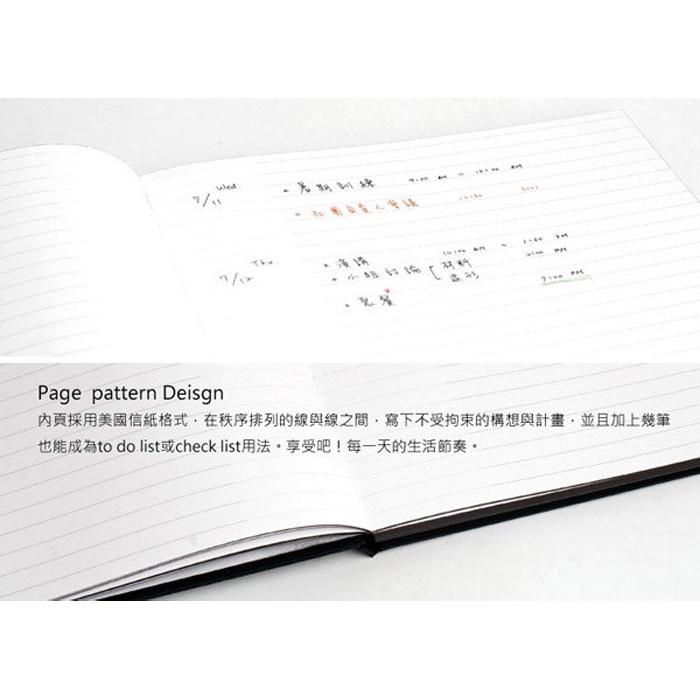 Wed
7/11
• 暑期訓練 9:00 AM ~ 12:00 AM
• 社團負責人會議 12:30
Thu
7/12
• 演講 10:00 AM ~ 1:30 PM
• 小組討論 [材料 2:00 PM
造形
• 聚餐 7:00 PM
Page pattern Deisgn
內頁採用美國信紙格式，在秩序排列的線與線之間，寫下不受拘束的構想與計畫，並且加上幾筆
也能成為to do list或check list用法。享受吧！每一天的生活節奏。